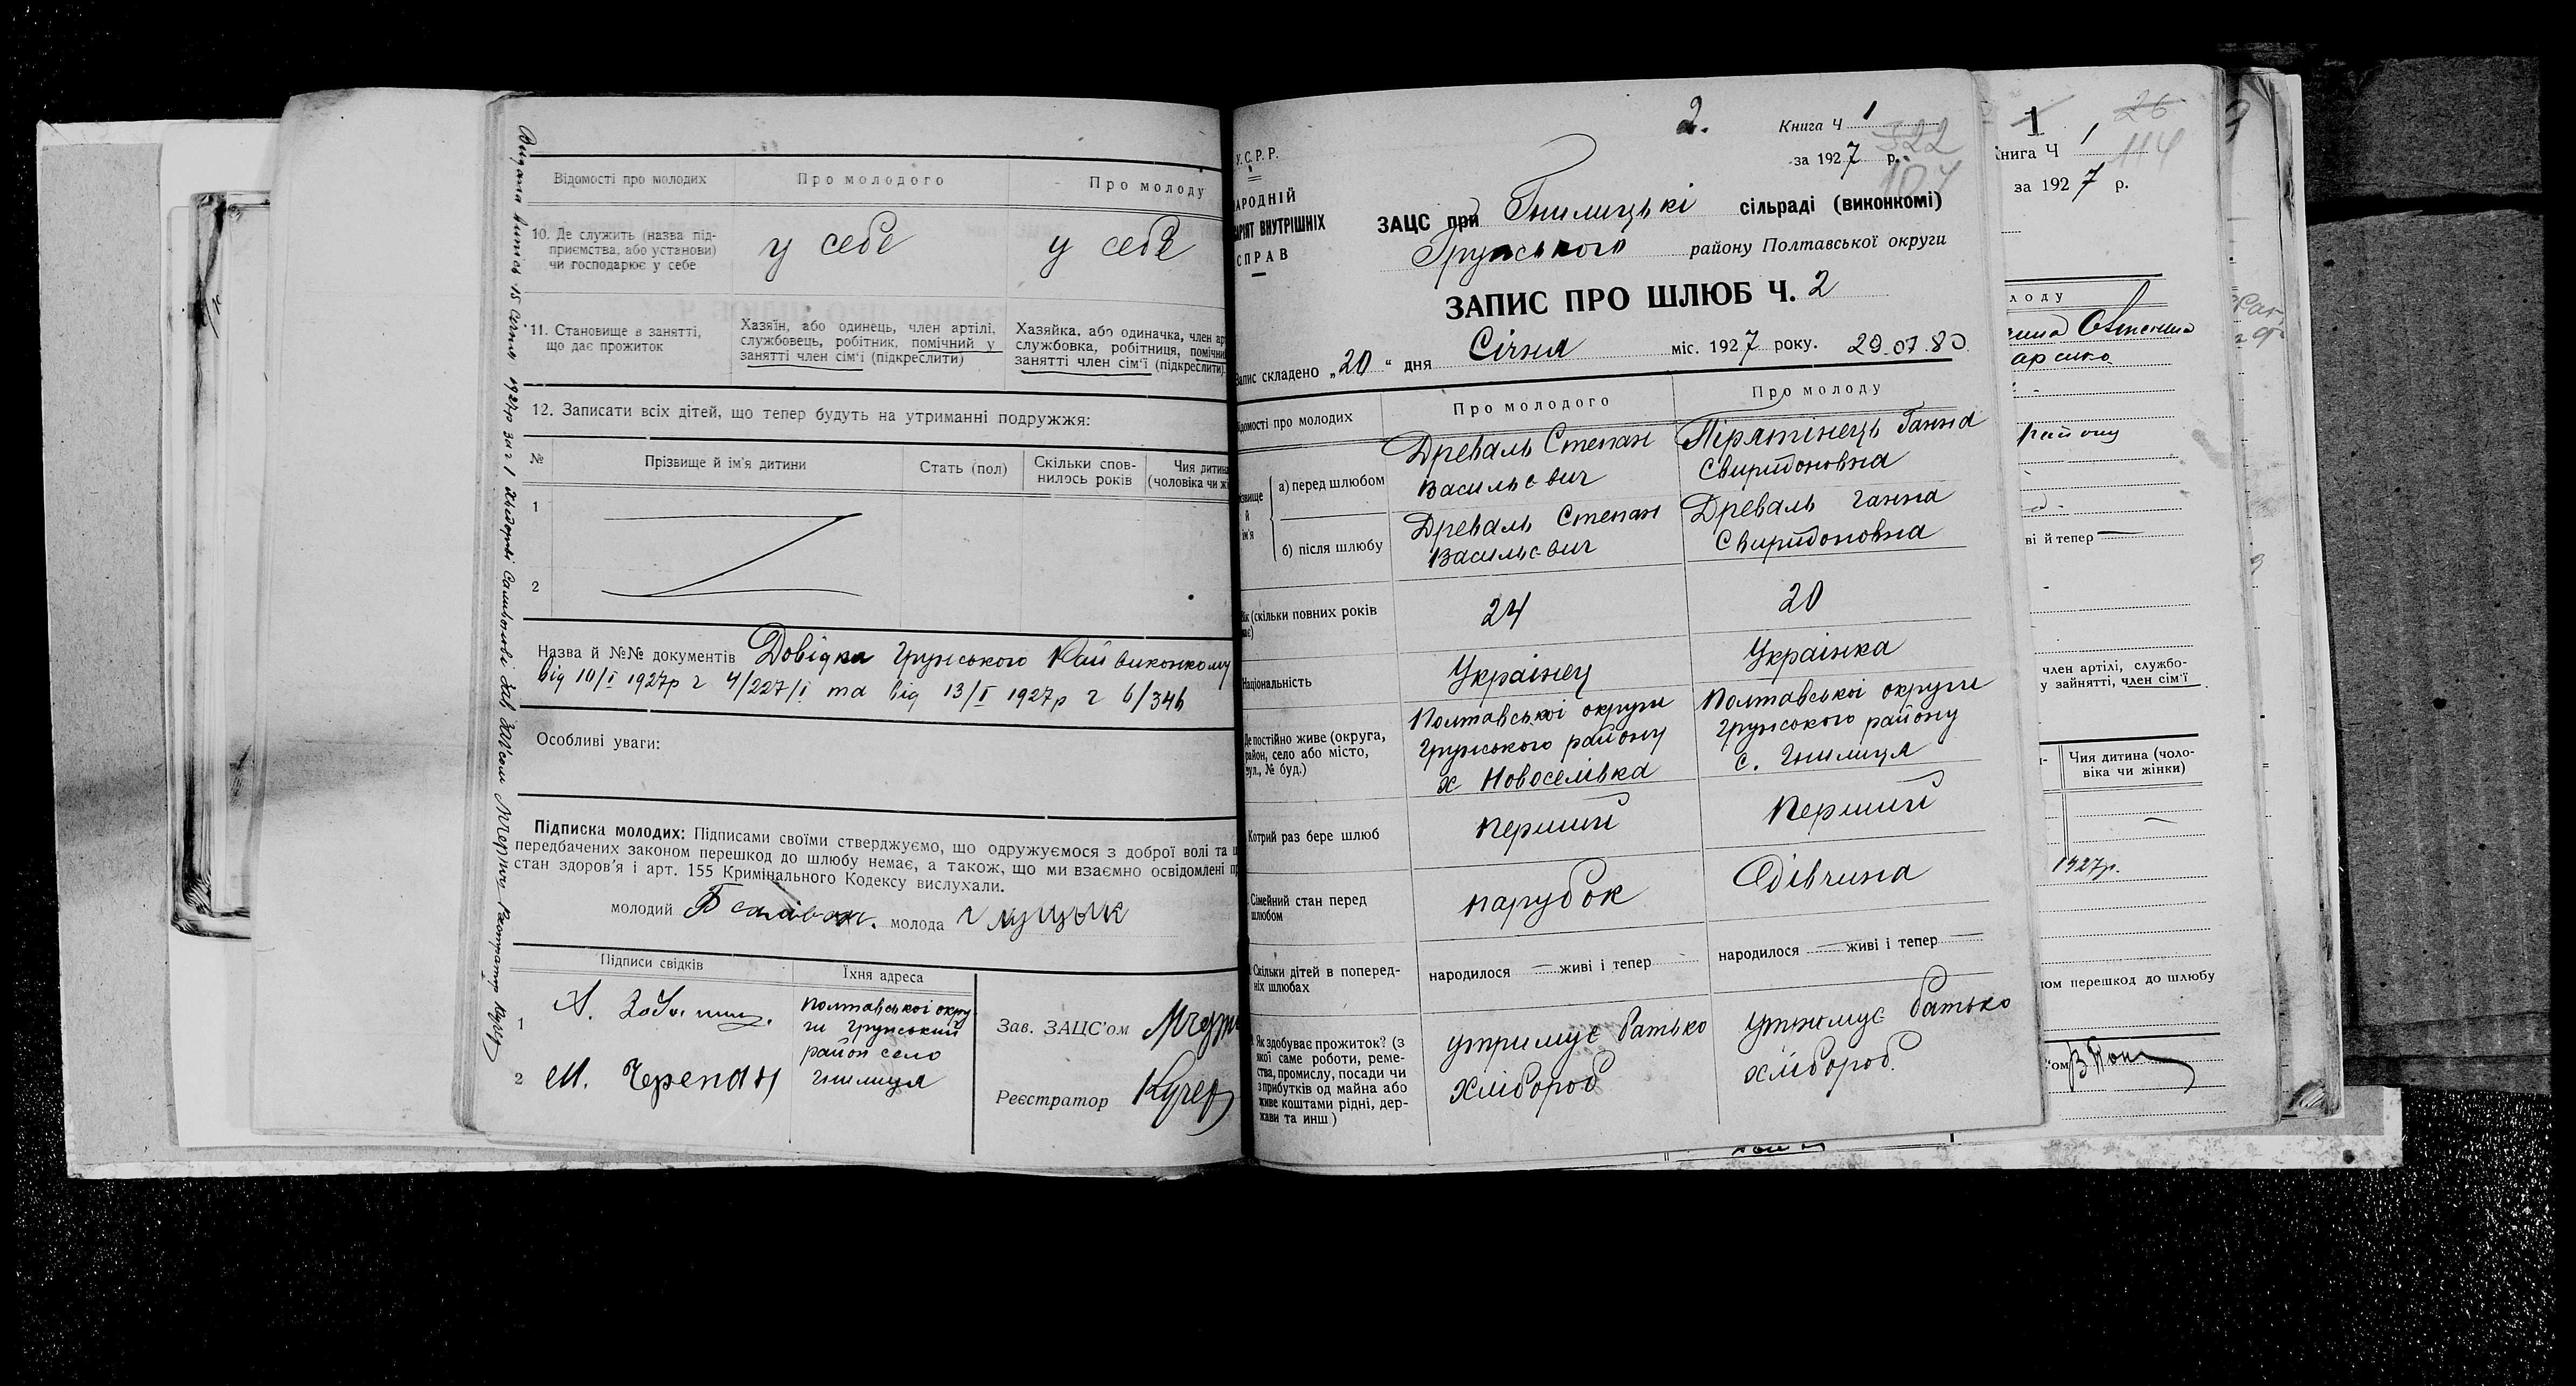 Відомості про молодих
Про молодого
Про молоду
10. Де служить (назва під-
приємства, або установи)
чи господарює у себе
у себе
у себе
11. Становище в занятті,
що дає прожиток
Хазяїн, або одинець, член артілі,
службовець, робітник, помічний у
занятті член сім'ї (підкреслити)
Хазяйка, або одиначка, член ар
службовка, робітниця, помічни
занятті член сім'ї (підкреслити)
12. Записати всіх дітей, що тепер будуть на утриманні подружжя:
№
Прізвище й ім'я дитини
Стать (пол)
Скільки спов-
нилось років
Чия дитина
(чоловіка чи жі
1
2
Назва й №№ документів Довідка Грунського Райвиконкому
від 10/I 1927р ч 4/227/I та від 13/I 1927р ч 6/346
Особливі уваги:
Підписка молодих: Підписами своїми стверджуємо, що одружуємося з доброї волі та
передбачених законом перешкод до шлюбу немає, а також, що ми взаємно освідомлені п
стан здоров'я і арт. 155 Кримінального Кодексу вислухали.
молодий
молода
Підписи свідків
Їхня адреса
1
2 М. Черепан
Полтавської окру
ги Грунський
район село
Гнилиця
Зав. ЗАЦС'ом
Реєстратор Кучер
2.
Книга Ч 1
за 1927 р.
322
107
У.С.Р.Р.
АРОДНІЙ
АРІЯТ ВНУТРІШНІХ
СПРАВ
ЗАЦС при Гнилицькі сільраді (виконкомі)
Грунського району Полтавської округи
ЗАПИС ПРО ШЛЮБ Ч. 2
Запис складено „20“ дня Січня міс. 1927 року. 29.07.80
ідомості про молодих
Про молодого
Про молоду
ізвище
й
ім'я
а) перед шлюбом
Древаль Степан
Васильєвич
Пірятінець Ганна
Свиридоновна
б) після шлюбу
Древаль Степан
Васильєвич
Древаль Ганна
Свиридоновна
ік (скільки повних років
має)
24
20
Національність
Українец
Українка
Де постійно живе (округа,
район, село або місто,
вул., № буд.)
Полтавської округи
Грунського району
х Новоселівка
Полтавської округи
Грунського району
с. Гнилиця
Котрий раз бере шлюб
Перший
Перший
Сімейний стан перед
шлюбом
парубок
Дівчина
Скільки дітей в поперед-
ніх шлюбах
народилося — живі і тепер
народилося — живі і тепер —
Як здобуває прожиток? (з
якої саме роботи, реме-
ства, промислу, посади чи
з прибутків од майна або
живе коштами рідні, дер-
жави та инш)
утримує батько
хлібороб
утримує батько
хлібороб.
1
26
114
нига Ч 1
за 1927 р.
лоду
району
ві й тепер —
член артілі, службо-
у зайнятті, член сім'ї
Чия дитина (чоло-
віка чи жінки)
1927р.
ом перешкод до шлюбу
'ом